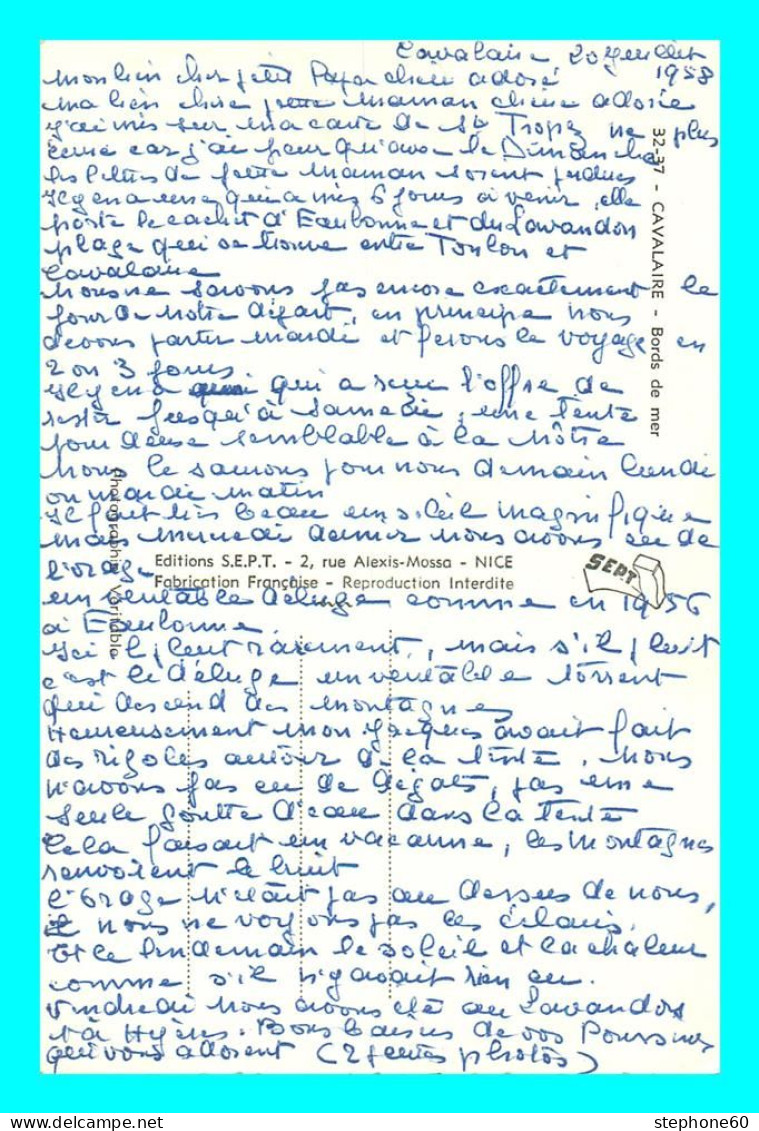 Cavalaire 20 juillet
1958
Mon bien cher petit Papa chéri adoré
Ma bien chère petite Maman chérie adorée
J'ai mis sur ma carte de St Tropez ne plus
écrire car j'ai peur qu'avec le Dimanche
les lettres de petite Maman soient perdues
Il y en a une qui a mis 6 jours à venir, elle
porte le cachet d'Eaubonne et du Lavandou
plage qui se trouve entre Toulon et
Cavalaire
Nous ne savons pas encore exactement le
jour de notre départ, en principe nous
devons partir mardi et ferons le voyage en
2 ou 3 jours
Il y en a qui a reçu l'offre de
rester jusqu'à samedi, une tente
pour deux semblable à la nôtre
Nous le saurons pour nous demain lundi
ou mardi matin
Il fait très beau un soleil magnifique
mais mercredi dernier nous avons eu de
l'orage
un véritable déluge comme en 1956
à Eaubonne
Ici il pleut rarement, mais s'il pleut
c'est le déluge un véritable torrent
qui descend des montagnes
Heureusement mon Jacques avait fait
des rigoles autour de la tente, nous
n'avons pas eu de dégâts, pas une
seule goutte d'eau dans la tente
Cela faisait un vacarme, les montagnes
renvoient le bruit
L'orage n'était pas au dessus de nous,
nous ne voyons pas les éclairs.
Et le lendemain le soleil et la chaleur
comme s'il n'y avait rien eu.
Vendredi nous avons été au Lavandou
et à Hyères. Bons baisers de vos
qui vous adorent (2 petites photos)
32-37 - CAVALAIRE - Bords de mer
Photographie Véritable
Editions S.E.P.T. - 2, rue Alexis-Mossa - NICE
Fabrication Française - Reproduction Interdite
SEPT
stephone60